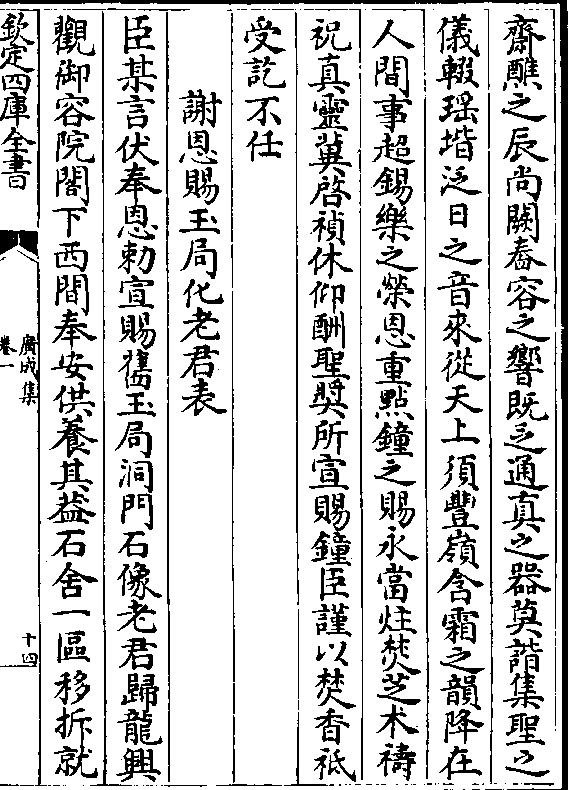 齋醮之辰尚闕舂容之響既乏通真之器莫諧集聖之
儀輟瑶堦泛日之音來從天上須豐嶺含霜之韻降在
人間事超錫樂之榮恩重點鐘之賜永當炷焚芝术禱
祝真靈冀啓禎休仰酬聖奬所宣賜鐘臣謹以焚香祗
受訖不任
謝恩賜玉局化老君表
臣某言伏奉恩勅宣賜舊玉局洞門石像老君歸龍興
觀御容院閣下西間奉安供養其葢石舍一區移拆就
欽定四庫全書
廣成集
卷一
十四